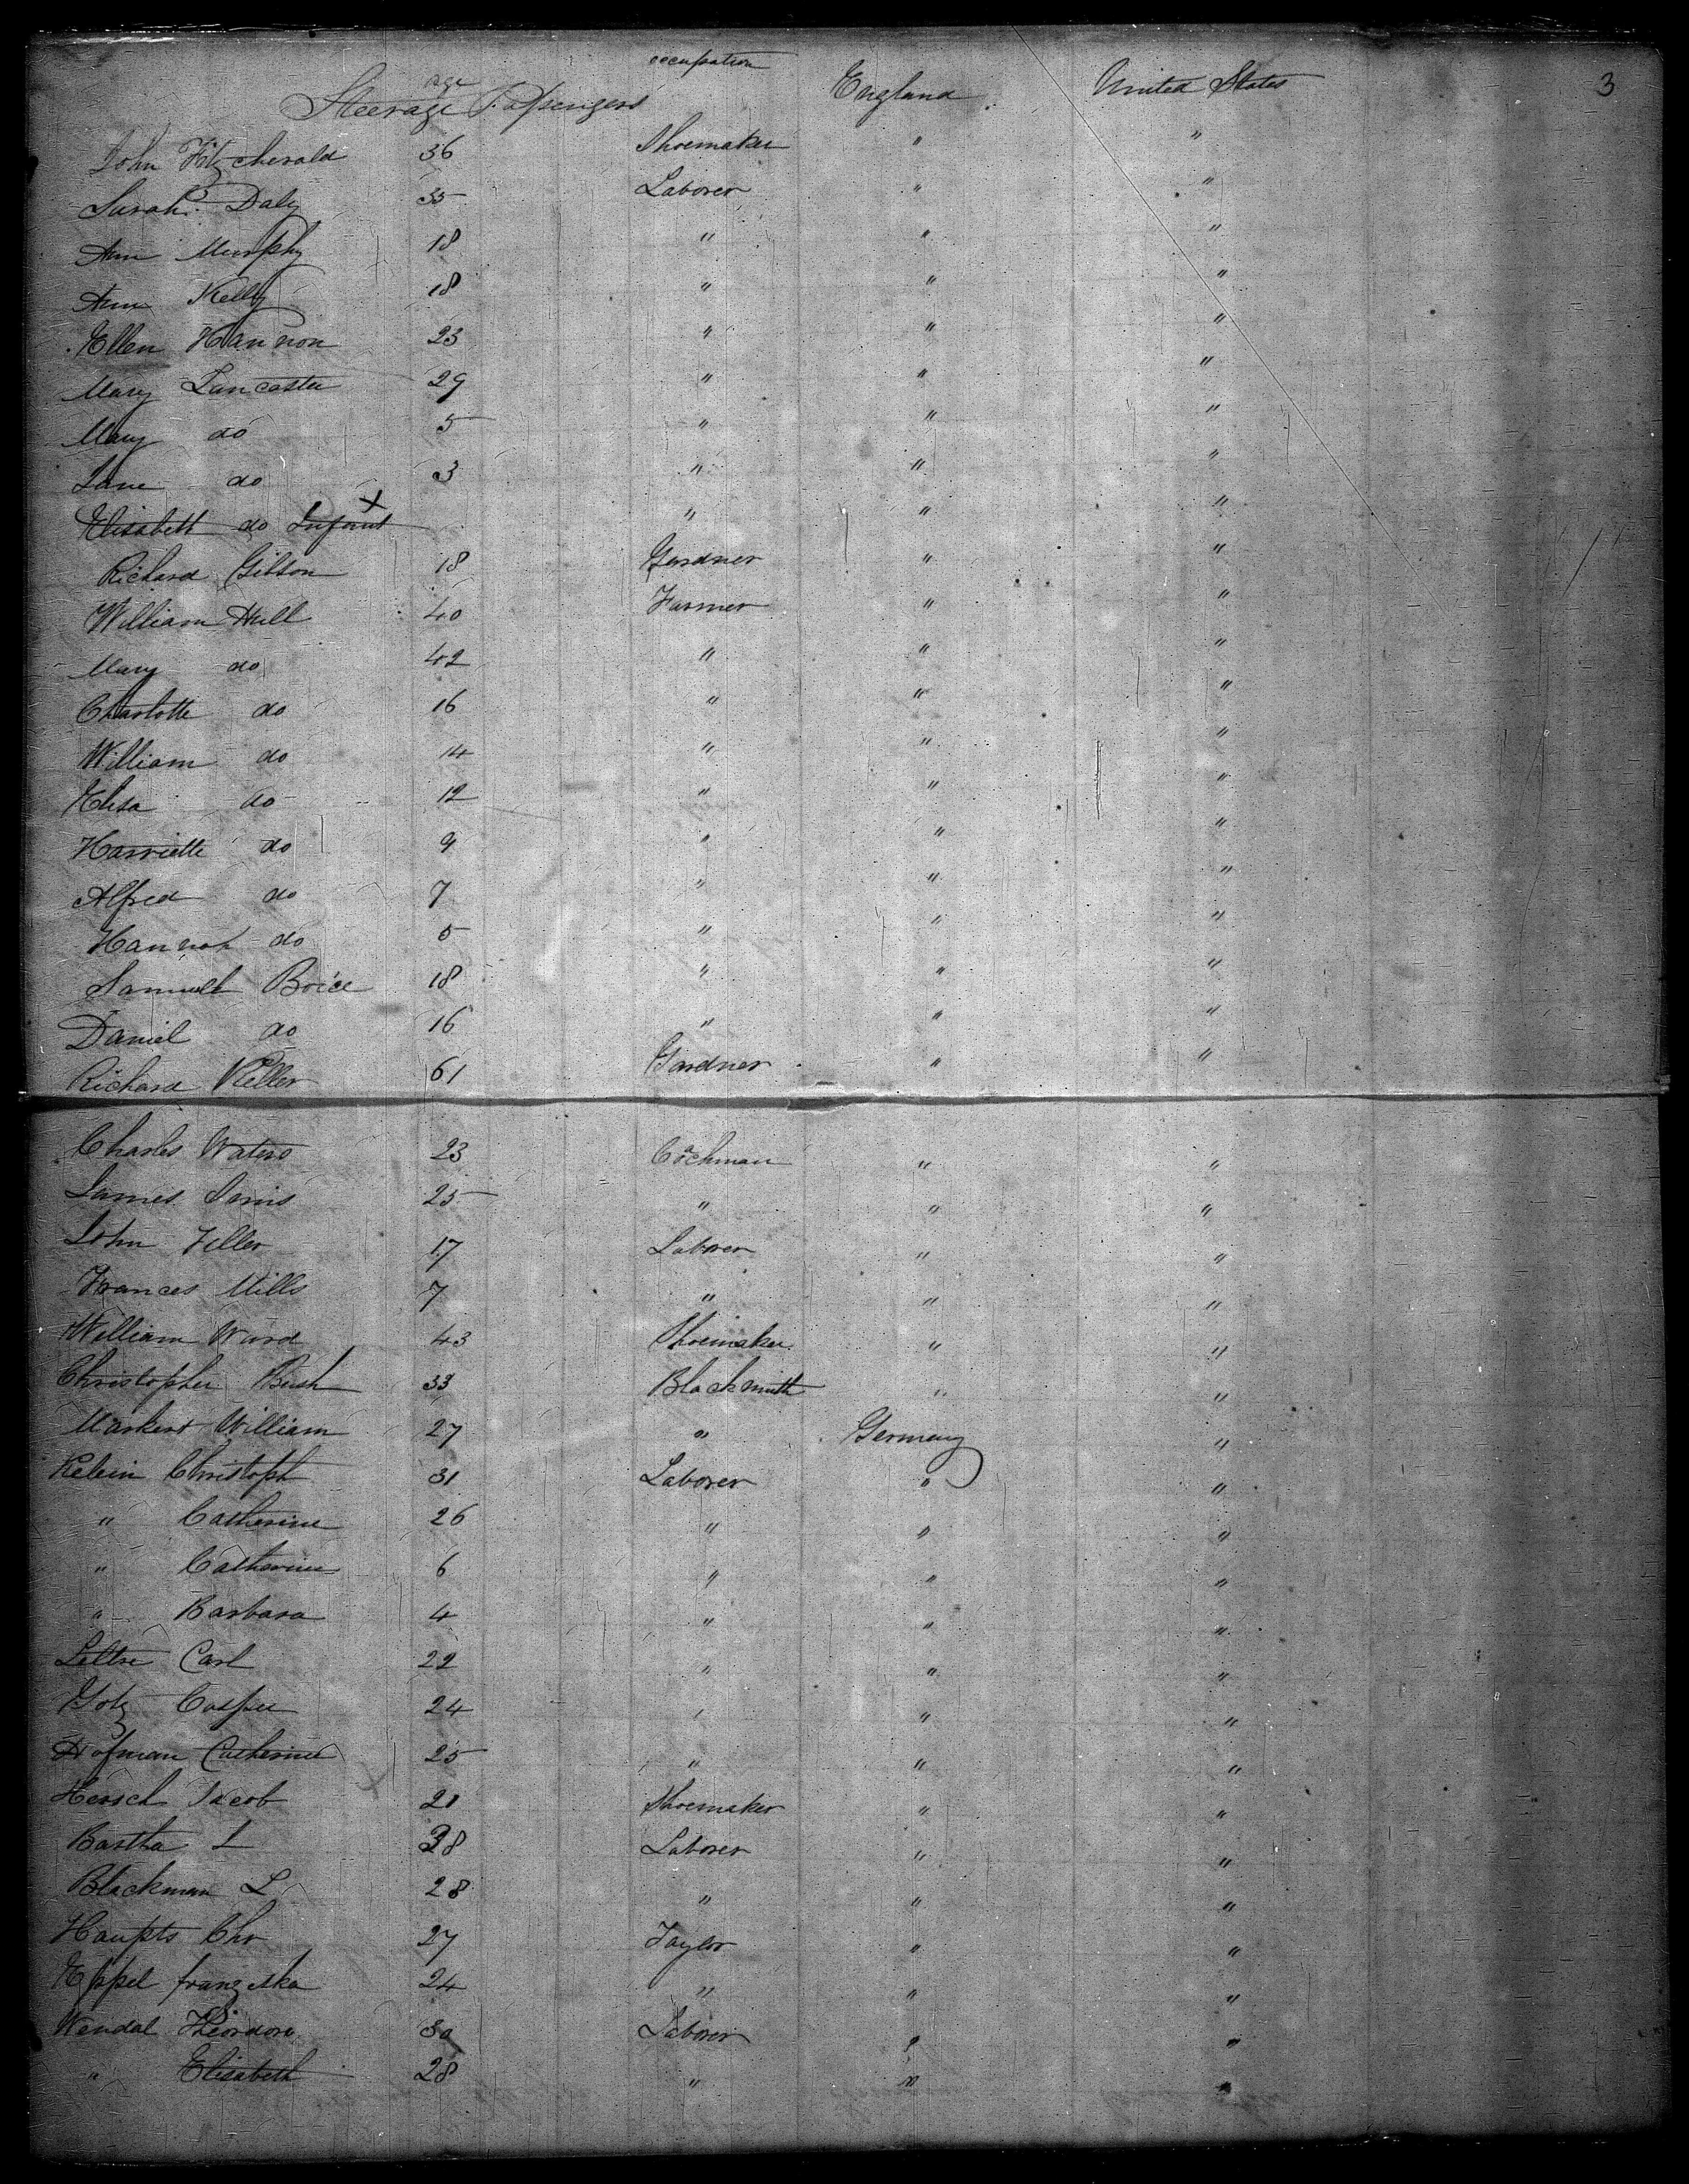 3
age occupation
Steerage Passengers England United States
John Fitzcherald 36 Shoemaker " "
Sarah Daly 35 Laborer " "
Ann Murphy 18 " " "
Ann Kelly 18 " " "
Ellen Hannon 23 " " "
Mary Lancaster 29 " " "
Mary do 5 " " "
Jane do 3 " " "
Elisabett do Infant " " "
Richard Gibson 18 Gardner " "
William Hull 40 Farmer " "
Mary do 42 " " "
Charlotte do 16 " " "
William do 14 " " "
Elisa do 12 " " "
Harriette do 9 " " "
Alfred do 7 " " "
Hannah do 5 " " "
Samuell Boice 18 " " "
Daniel do 16 " " "
Richard Keller 61 Gardner " "
Charles Waters 23 Cochman " "
James 25 " " "
John Feller 17 Laborer " "
Frances Mills 7 " " "
William Ward 43 Shoemaker " "
Christopher Bush 33 Blacksmith " "
Markert William 27 " Germany "
Christoph 31 Laborer " "
" Catherine 26 " " "
" Catherine 6 " " "
" Barbara 4 " " "
Carl 22 " " "
Gotz Casper 24 " " "
Hofman Catherine 25 " " "
Hersch Jacob 21 Shoemaker " "
Bartha L 38 Laborer " "
Blackman L 28 " " "
Haupts Chr 27 Taylor " "
Eppel franziska 24 " " "
Wendal Theordore 30 Laborer " "
" Elisabeth 28 " " "